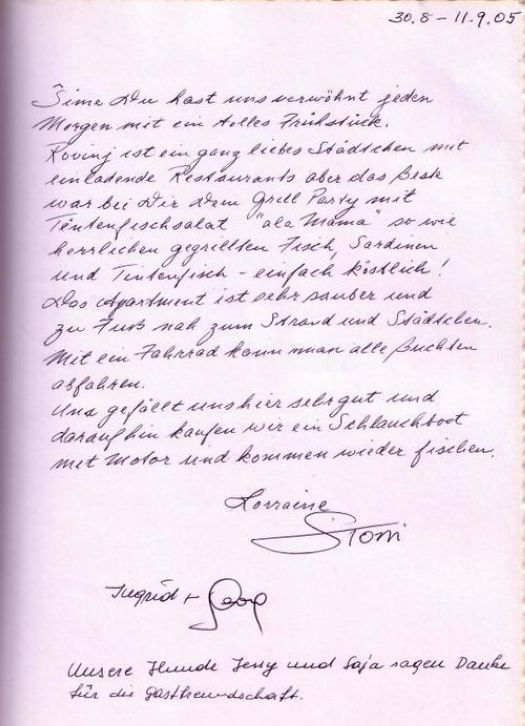 30.8 - 11.9.05
Sime Du hast uns verwöhnt jeden
Morgen mit ein tolles Frühstück.
Rovinj ist ein ganz liebes Städtchen mit
einladende Restaurants aber das Beste
war bei Dir Dem Grill Party mit
Tintenfischsalat "ala Mama" so wie
herrlichen gegrillten Fisch, Sardinen
und Tintenfisch - einfach köstlich!
Das Apartment ist sehr sauber und
zu Fuß nah zum Strand und Städtchen.
Mit ein Fahrrad kann man alle Buchten
abfahren.
Uns gefällt uns hier sehr gut und
daraufhin kaufen wir ein Schlauchboot
mit Motor und kommen wieder fischen.
Lorraine
Toni
Ingrid + Georg
Unsere Hunde Jeny und Saja sagen Danke
für die Gastfreundschaft.